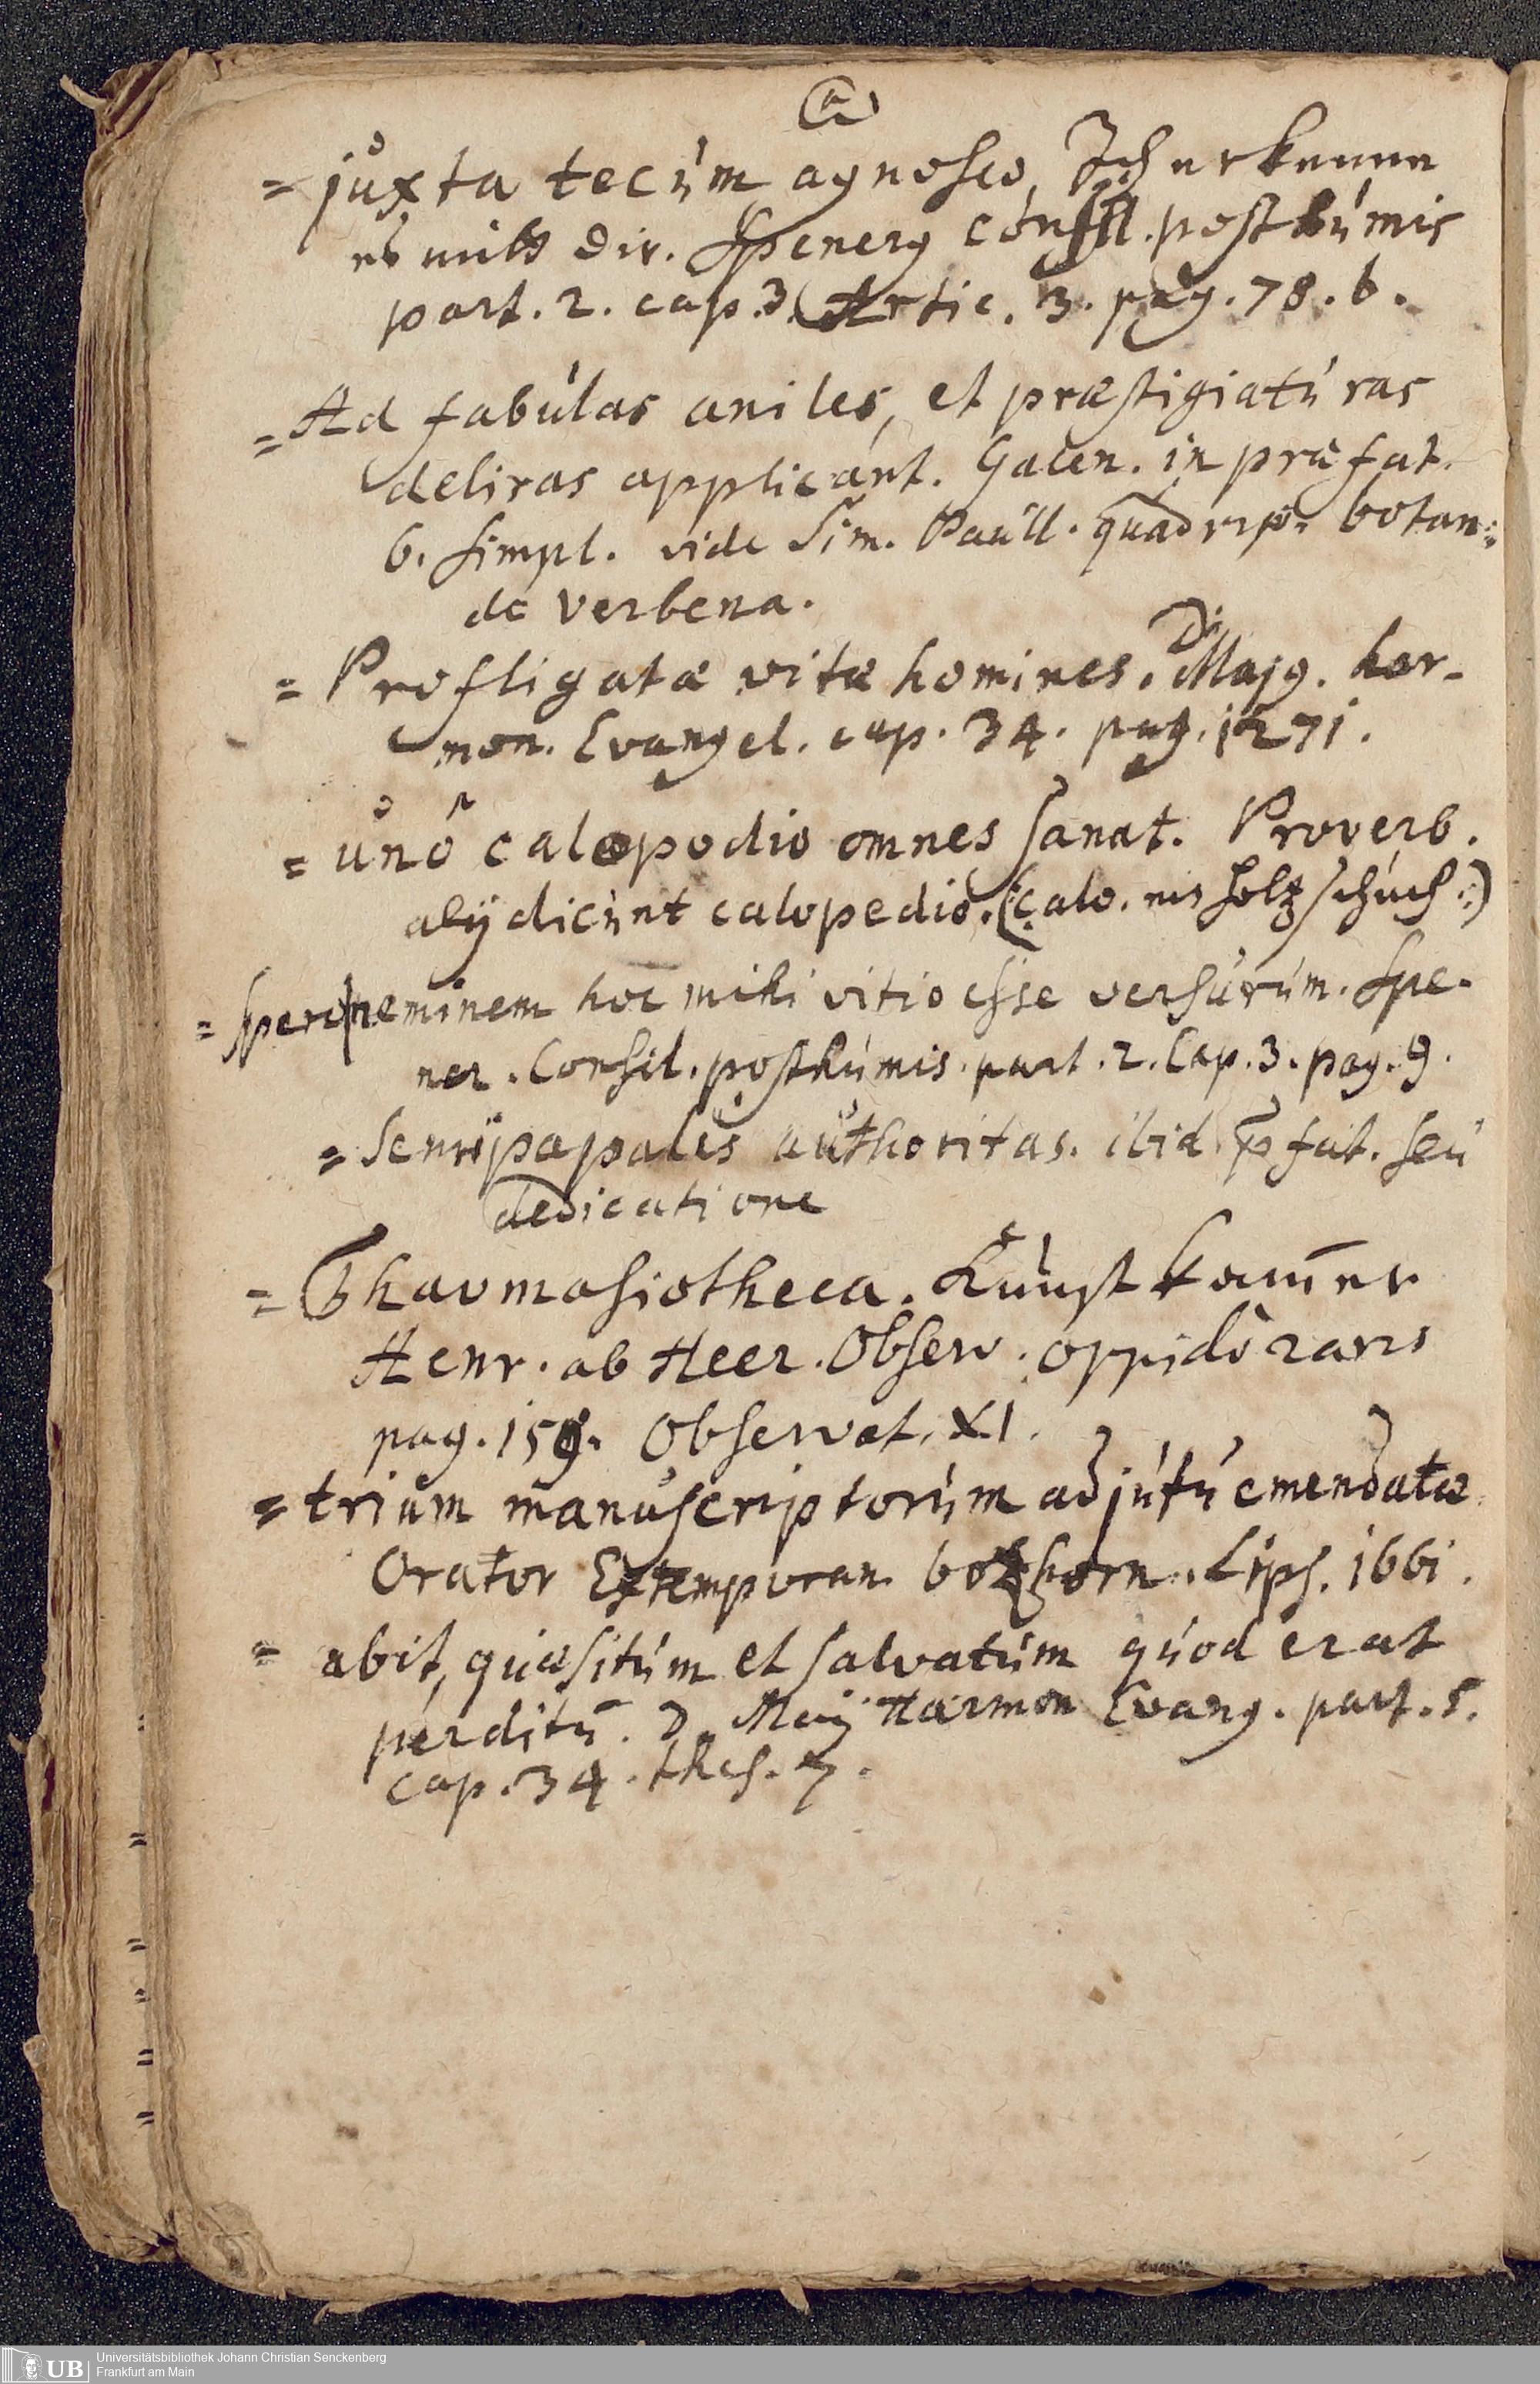 = juxta tecum agnosco, Ich erkenne
es mit dir. Spenerg consil. posthumis
part. 2. cap. 3. Artic. 3. pag. 78. b.
= Ad fabulas aniles, et præstigiaturas
deliras applicant. Galen. in præfat.
6. simpl. vide Sim. Paull. quadrip. botan:
de verbena.
= Profligatæ vitæ homines. D. Majg. har-
mon. Evangel. cap. 34. pag. 1271.
= unô calopodio omnes sanat. Proverb.
alÿ dicunt calopedio. (: calo. ein Holzschuch :)
= spero neminem hoc mihi vitio esse versurum. Spe-
ner. Consil. posthumis. part. 2. Cap. 3. pag. 9.
= Semipapales authoritas. ibid. p̄fat. seu
dedicatione
= Thaumasiotheca. Kunst kam̄er.
Henr. ab Heer. Observ. oppidò raris
pag. 159. Observat. XI.
= trium manuscriptorum adjutu emendatæ
Orator Extemporan. boxhorn. Lips. 1661.
= abit, quæsitum et salvatum quod erat
perditū. D. Maÿ Harmon Evang. part. 5.
cap. 34. thes. 7.
UB Universitätsbibliothek Johann Christian Senckenberg
Frankfurt am Main